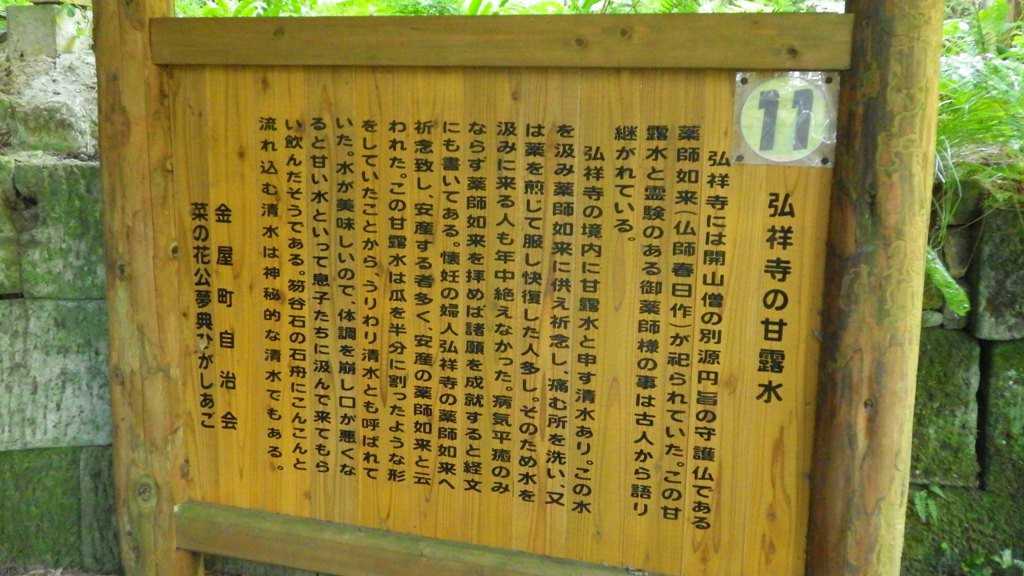 11
弘祥寺の甘露水
弘祥寺には開山僧の別源円旨の守護仏である
薬師如来(仏師春日作)が祀られていた。この甘
露水と霊験のある御薬師様の事は古人から語り
継がれている。
弘祥寺の境内に甘露水と申す清水あり。この水
を汲み薬師如来に供え祈念し、痛む所を洗い、又
は薬を煎じて服し快復した人多し。そのため水を
汲みに来る人も年中絶えなかった。病気平癒のみ
ならず薬師如来を拝めば諸願を成就すると経文
にも書いてある。懐妊の婦人弘祥寺の薬師如来へ
祈念致し、安産する者多く、安産の薬師如来と云
われた。この甘露水は瓜を半分に割ったような形
をしていたことから、うりわり清水とも呼ばれて
いた。水が美味しいので、体調を崩し口が悪くな
ると甘い水といって息子たちに汲んで来てもら
い飲んだそうである。笏谷石の石舟にこんこんと
流れ込む清水は神秘的な清水でもある。
金屋町自治会
菜の花公夢典ひがしあご